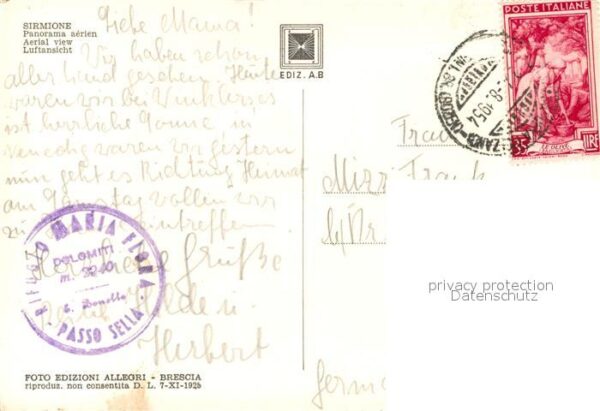 SIRMIONE
Panorama aérien
Aerial view
Luftansicht
EDIZ. A.B
POSTE ITALIANE
35 LIRE
8. 1954
Liebe Mama!
Wir haben schon
allerhand gesehen. Heute
waren wir bei
ist herrliche Sonne in
Venedig waren wir gestern
nun geht es Richtung Heimat
am Samstag wollen wir
zu eintreffen
Herzliche Grüße
Hilde u.
Herbert
Frau
Mizzi Frank
RIFUGIO MARIA FLORA
DOLOMITI
m. 2240
PASSO SELLA
privacy protection
Datenschutz
FOTO EDIZIONI ALLEGRI - BRESCIA
riproduz. non consentita D. L. 7-XI-1925